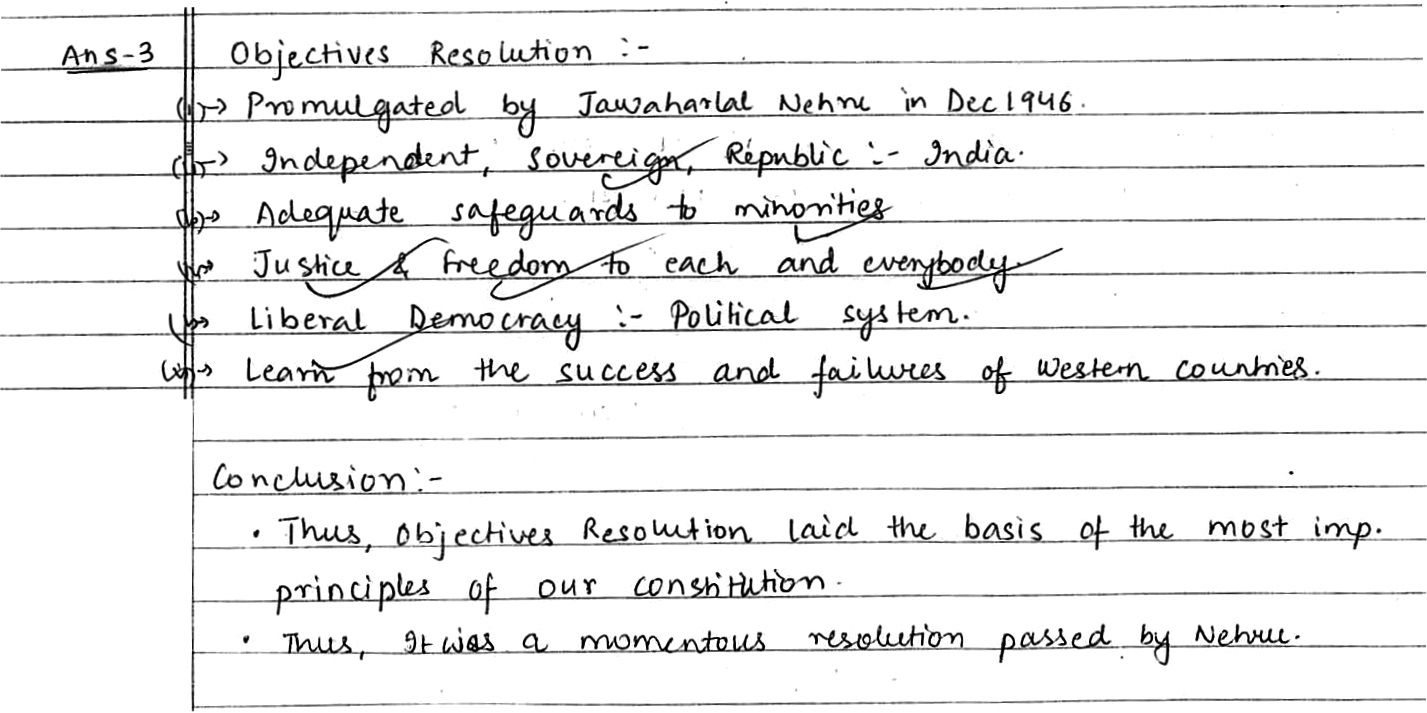 Ans-3 Objectives Resolution :-
→ Promulgated by Jawaharlal Nehru in Dec 1946.
→ Independent, Sovereign, Republic :- India.
→ Adequate safeguards to minorities
→ Justice & freedom to each and everybody.
→ Liberal Democracy :- Political system.
→ Learn from the success and failures of western countries.
Conclusion :-
• Thus, Objectives Resolution laid the basis of the most imp.
principles of our constitution.
• Thus, It was a momentous resolution passed by Nehru.